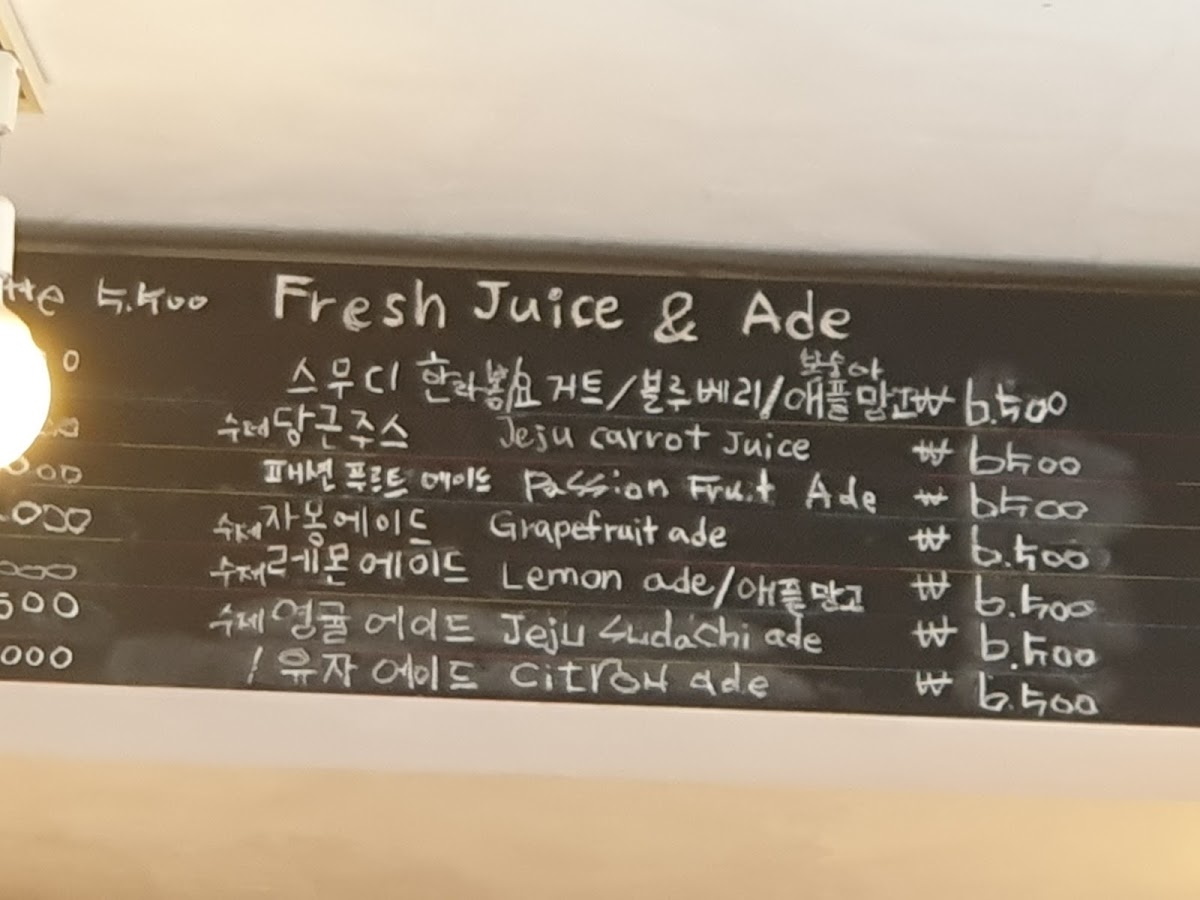 tte 5.500 Fresh Juice & Ade
0 스무디 한라봉/요거트/블루베리/애플망고 복숭아 ₩ 6.500
00 수제당근주스 Jeju carrot Juice ₩ 6500
000 패션푸르트 에이드 Passion Fruit Ade ₩ 6500
.000 수제자몽에이드 Grapefruit ade ₩ 6.500
000 수제레몬에이드 Lemon ade/애플망고 ₩ 6.500
500 수제영귤에이드 Jeju Sudachi ade ₩ 6.500
000 / 유자에이드 Citron ade ₩ 6.500